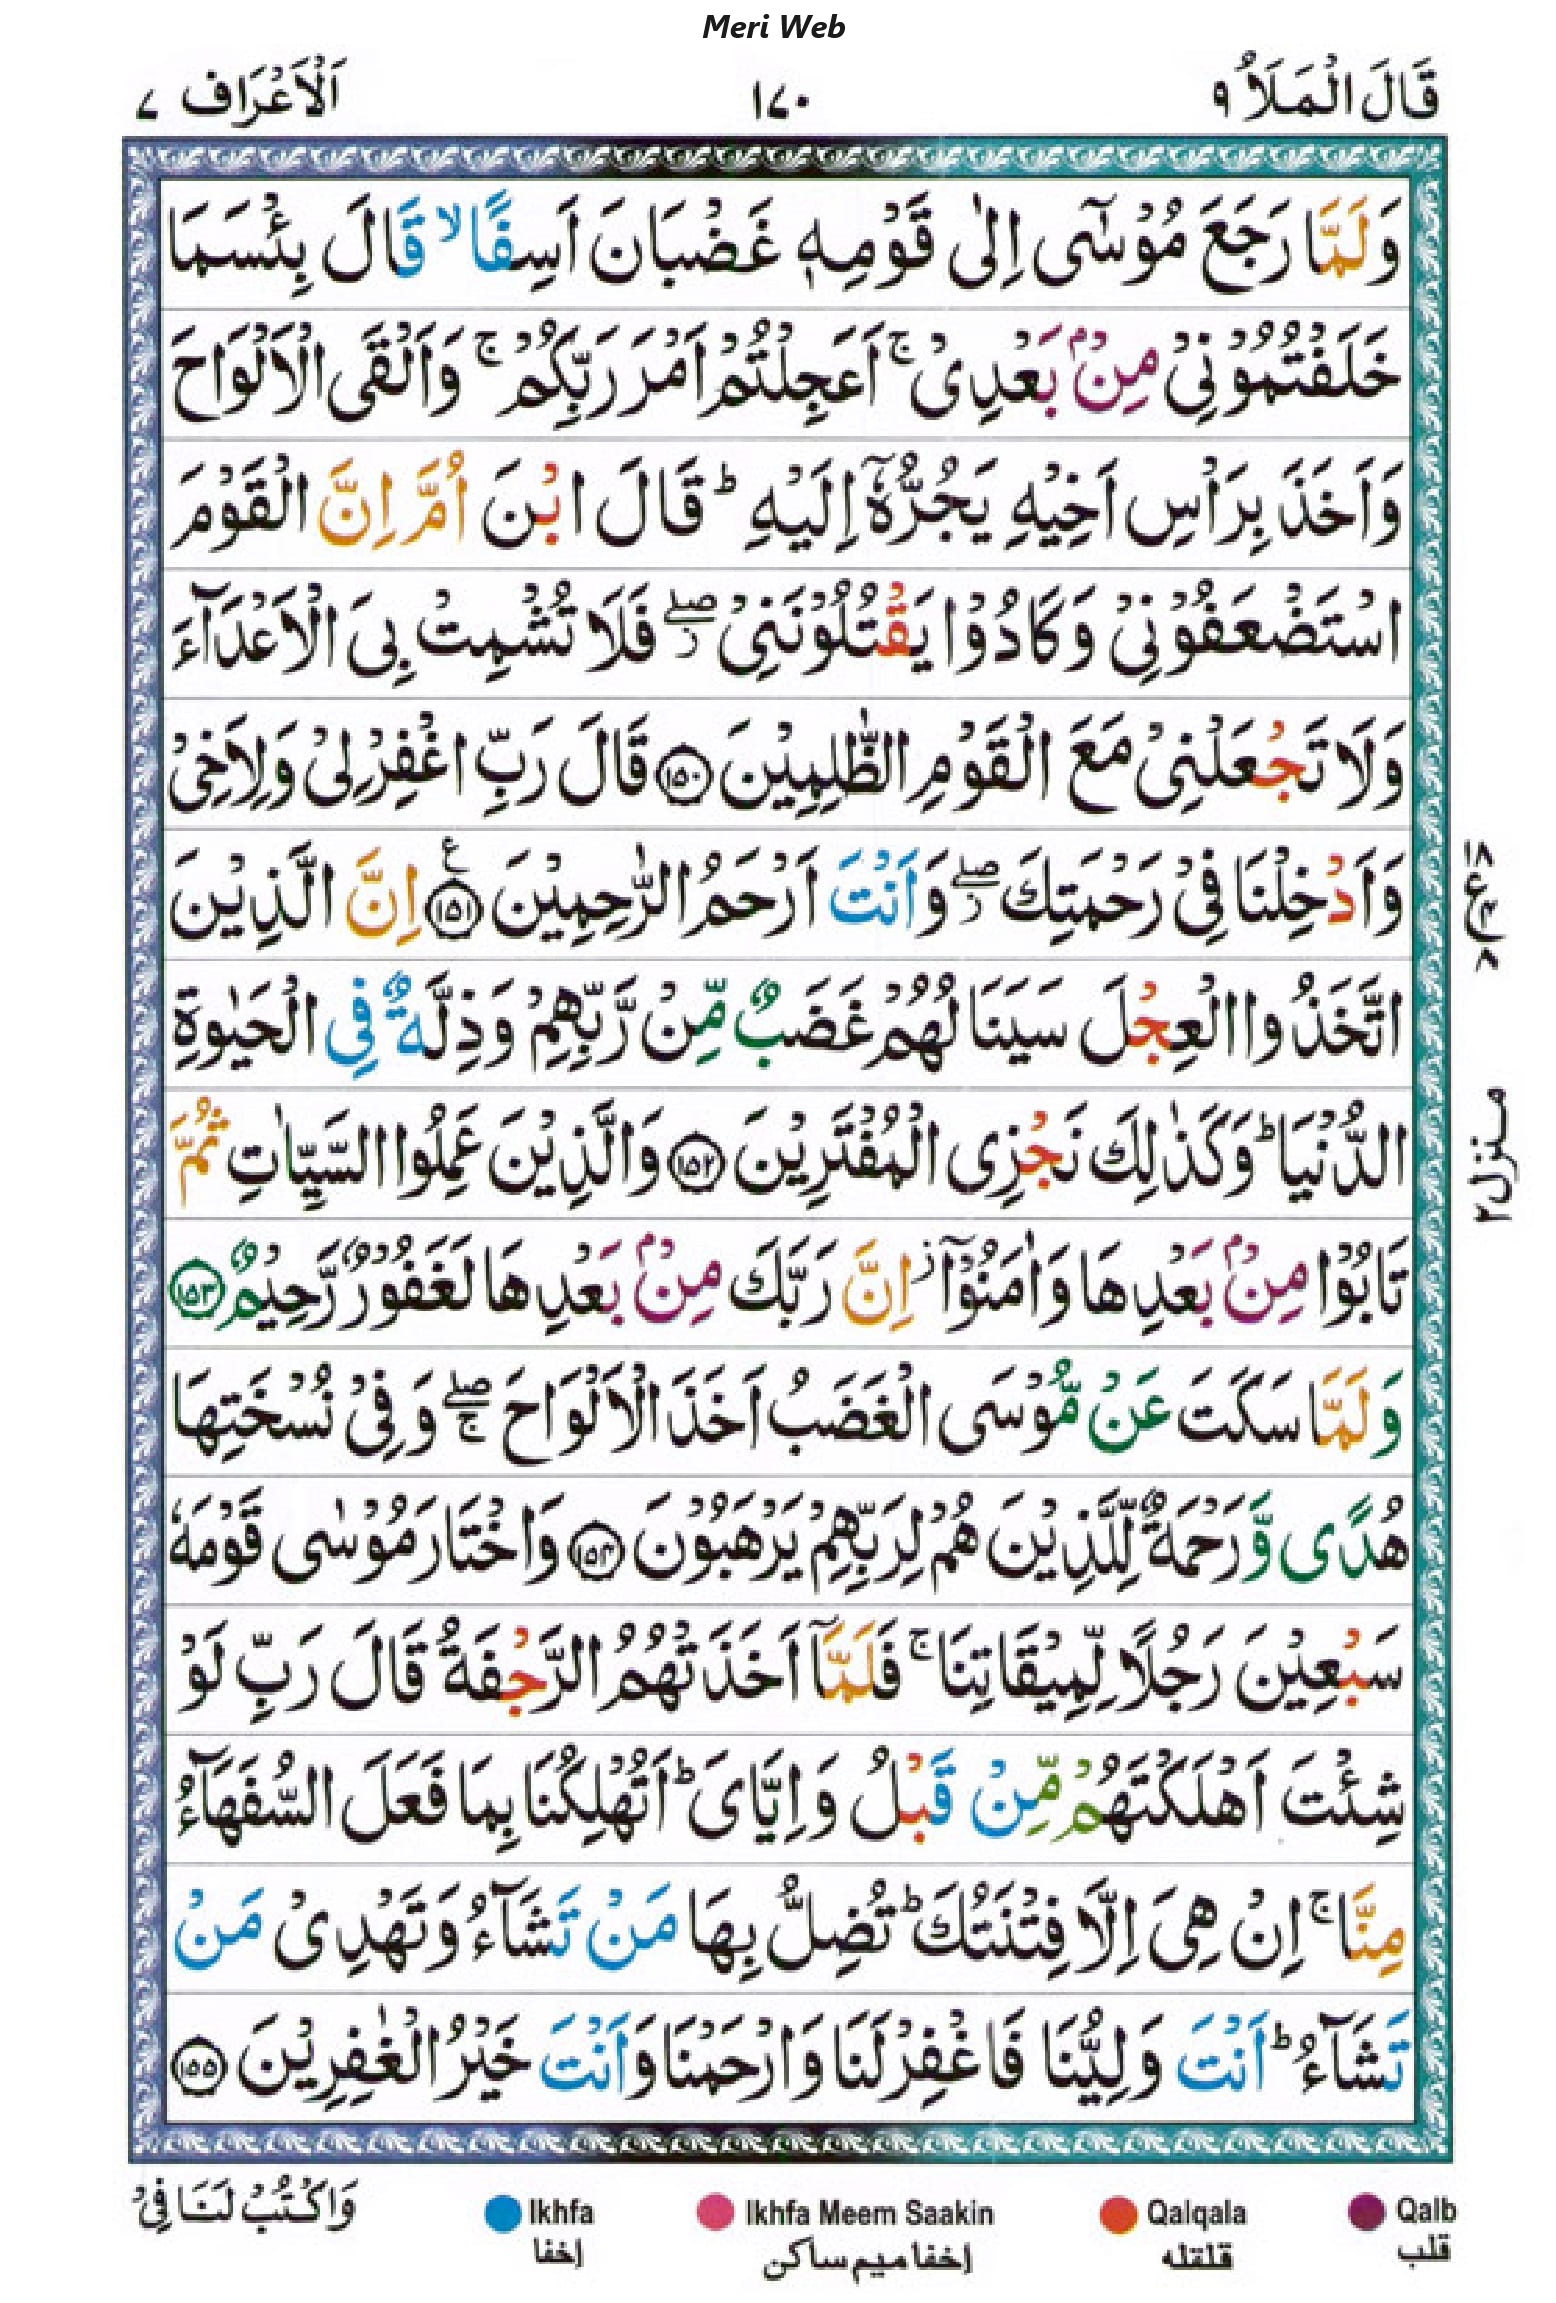 Meri Web
قَالَ الْمَلَاُ ۹
۱۷۰
اَلْاَعْرَاف ۷
وَلَمَّا رَجَعَ مُوْسٰٓى اِلٰى قَوْمِهٖ غَضْبَانَ اَسِفًا ۙ قَالَ بِئْسَمَا
خَلَفْتُمُوْنِىْ مِنْۢ بَعْدِىْ ۚ اَعَجِلْتُمْ اَمْرَ رَبِّكُمْ ۚ وَاَلْقَى الْاَلْوَاحَ
وَاَخَذَ بِرَاْسِ اَخِيْهِ يَجُرُّهٗٓ اِلَيْهِ ؕ قَالَ ابْنَ اُمَّ اِنَّ الْقَوْمَ
اسْتَضْعَفُوْنِىْ وَكَادُوْا يَقْتُلُوْنَنِىْ ۖ ز فَلَا تُشْمِتْ بِىَ الْاَعْدَآءَ
وَلَا تَجْعَلْنِىْ مَعَ الْقَوْمِ الظّٰلِمِيْنَ ﴿۱۵۰﴾ قَالَ رَبِّ اغْفِرْ لِىْ وَلِاَخِىْ
وَاَدْخِلْنَا فِىْ رَحْمَتِكَ ۖ ز وَاَنْتَ اَرْحَمُ الرّٰحِمِيْنَ ﴿۱۵۱﴾ ع اِنَّ الَّذِيْنَ
اتَّخَذُوا الْعِجْلَ سَيَنَالُهُمْ غَضَبٌ مِّنْ رَّبِّهِمْ وَذِلَّةٌ فِى الْحَيٰوةِ
الدُّنْيَا ؕ وَكَذٰلِكَ نَجْزِى الْمُفْتَرِيْنَ ﴿۱۵۲﴾ وَالَّذِيْنَ عَمِلُوا السَّيِّاٰتِ ثُمَّ
تَابُوْا مِنْۢ بَعْدِهَا وَاٰمَنُوْٓا ز اِنَّ رَبَّكَ مِنْۢ بَعْدِهَا لَغَفُوْرٌ رَّحِيْمٌ ﴿۱۵۳﴾
وَلَمَّا سَكَتَ عَنْ مُّوْسَى الْغَضَبُ اَخَذَ الْاَلْوَاحَ ۖ ج وَفِىْ نُسْخَتِهَا
هُدًى وَّرَحْمَةٌ لِّلَّذِيْنَ هُمْ لِرَبِّهِمْ يَرْهَبُوْنَ ﴿۱۵۴﴾ وَاخْتَارَ مُوْسٰى قَوْمَهٗ
سَبْعِيْنَ رَجُلًا لِّمِيْقَاتِنَا ۚ فَلَمَّآ اَخَذَتْهُمُ الرَّجْفَةُ قَالَ رَبِّ لَوْ
شِئْتَ اَهْلَكْتَهُمْ مِّنْ قَبْلُ وَاِيَّاىَ ؕ اَتُهْلِكُنَا بِمَا فَعَلَ السُّفَهَآءُ
مِنَّا ۚ اِنْ هِىَ اِلَّا فِتْنَتُكَ ؕ تُضِلُّ بِهَا مَنْ تَشَآءُ وَتَهْدِىْ مَنْ
تَشَآءُ ؕ اَنْتَ وَلِيُّنَا فَاغْفِرْ لَنَا وَارْحَمْنَا وَاَنْتَ خَيْرُ الْغٰفِرِيْنَ ﴿۱۵۵﴾
ع
منزل ۲
وَاكْتُبْ لَنَا فِىْ
Ikhfa
اخفا
Ikhfa Meem Saakin
اخفا میم ساکن
Qalqala
قلقله
Qalb
قلب